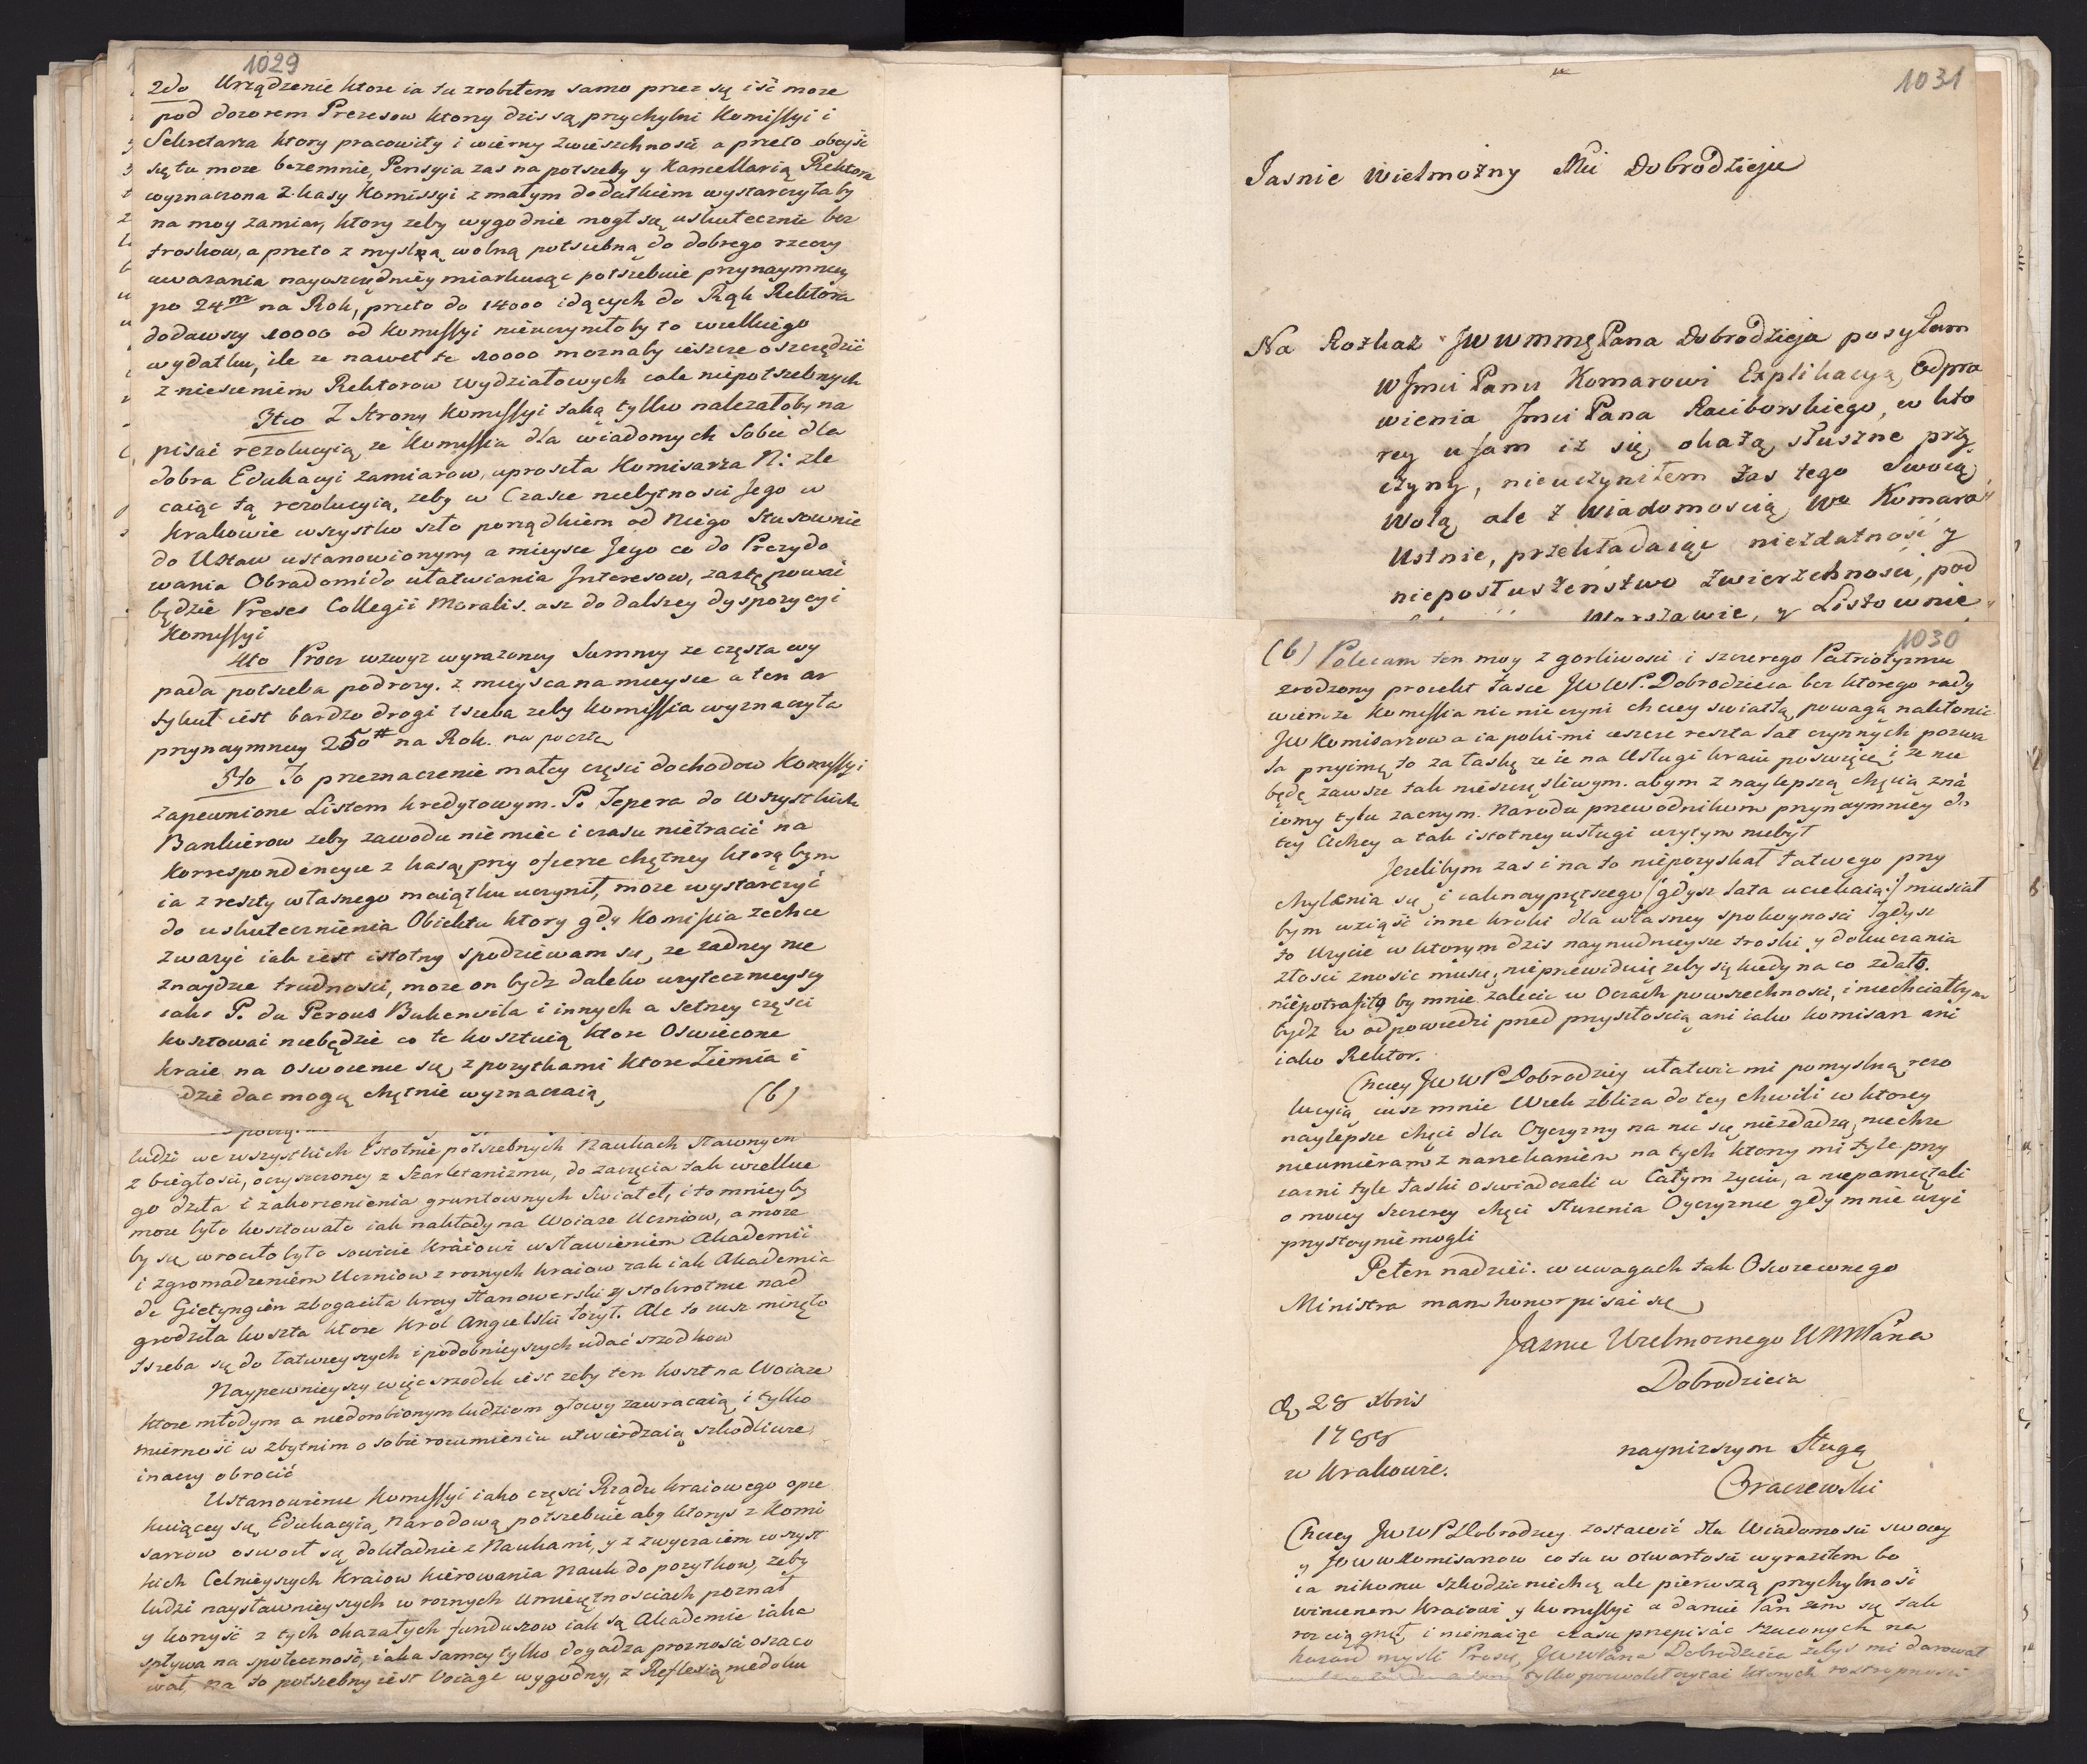 1029
2do Urządzenie ktore ia tu zrobiłem samo przez się iść moze
pod dozorem Prezesow ktorzy dzis są przychylni Komissyi i
Sekretarza ktory pracowity i wierny Zwieszchnosci a przeto obeyść
się tu moze bezemnie, Pensyia zas na potrzeby y Kancellarią Rektora
wyznaczona z kasy Komissyi z małym dodatkiem wystarczyłaby
na moy zamiar, ktory zeby wygodnie mogł się uskutecznic bez
troskow, a przeto z myslą wolną potrzebną do dobrego rzeczy
uwazania nayoszczędniey miarkuiąc potrzebuie przynaymniey
po 24m na Rok, przeto do 14000 idących do Rąk Rektora
dodawszy 10000 od Komissyi nieuczyniłoby to wielkiego
wydatku, ile ze nawet te 10000 moznaby ieszcze oszczędzić
zniesieniem Rektorow Wydziałowych cale niepotrzebnych
3tio Z Strony Komissyi taką tylko nalezałoby na
pisać rezolucyią, ze Komissia dla wiadomych Sobie dla
dobra Edukacyi zamiarow, uprosiła Komisarza N: zle
caiąc tą rezolucyią, zeby w Czasie niebytnosci Jego w
Krakowie wszystko szło porządkiem od Niego Stusownie
do Ustaw ustanowionym, a mieysce Jego co do Prezydo
wania Obradom i do ułatwiania Interesow, zastępować
będzie Preses Collegii Moralis. asz do dalszey dyspozycyi
Komissyi
4to Procz wzwyz wyrazoney Summy ze częsta wy
pada potrzeba podrozy. z mieysca na mieysce a ten ar
tykuł iest bardzo drogi trzeba zeby Komissia wyznaczyła
przynaymniey 250# na Rok. na pocztę
5to To przeznaczenie małey części dochodow Komissyi
zapewnione Listem kredytowym. P. Tepera do wszystkich
Bankierow zeby zawodu nie miec i czasu nietracić na
Korrespondencyie z kasą przy ofierze chętney ktorą bym
ia z reszty własnego maiątku uczynił, moze wystarczyć
do uskutecznienia Obiektu ktory gdy Komissia zechce
zwazyć iak iest istotny spodziewam się, ze zadney nie
znaydzie trudnosci, moze on bydz daleko uzytecznieyszy
iak P. da Perous Bukenvila i innych a setney części
kosztować niebędzie co te kosztuią ktore Oswiecone
kraie na oswocenie się, z pozytkami ktore Ziemia i
dzie dac mogą chętnie wyznaczaią, (b)
ludzi we wszystkich Istotnie potrzebnych Naukach Sławnych
z biegłosci, oczyszczoney z Szarletanizmu, do zaczęcia tak wielkie
go dzieła i zakorzenienia gruntownych Swiateł, i to mniey by
moze było kosztowało iak nakłady na Woiaze Uczniow, a moze
by się wrociło było sowicie kraiowi wsławieniem Akademii
i zgromadzeniem Uczniow z roznych kraiow tak iak Akademia
de Gietyngien zbogaciła kray Hanowerski y stokrotnie nad
grodziła koszta ktore Krol Angielski łozył. Ale to iusz minęło
trzeba się do łatwieyszych i podobnieyszych udać srzodkow
Naypewnieyszy więc srzodek iest zeby ten koszt na Woiaze
ktore młodym a niedorobionym ludziom głowy zawracaią, i tylko
miernosć w zbytnim o sobie rozumieniu utwierdzaią szkodliwe,
inaczy obrocić
Ustanowienie Komissyi iako części Rządu kraiowego opie
kuiącey się, Edukacyią Narodową potrzebuie aby ktorys z Komi
sarzow oswoił się dokładnie z Naukami, y z zwyczaiem wszyst
kich Celnieyszych kraiow kierowania Nauk do pozytkow, zeby
ludzi naysławnieyszych w roznych Umieiętnosciach poznał
y korzyść z tych okazałych funduszow iak są Akademie iaka
spływa na społecznosć, iaka samey tylko dogadza proznosci oszaco
wał, na to potrzebny iest Voiage wygodny, z Reflexią niedoku
1031
Jasnie Wielmozny Mci Dobrodzieju
Na Rozkaz JWWMMę Pana Dobrodzieja posyłam
WJmci Panu Komarowi Explikacyą, Odpra
wienia Jmci Pana Raciborskiego, w kto
rey ufam iz się okazą słuszne przy
czyny, nieuczyniłem zas tego Swoią
Wolą ale z wiadomoscią We Komara
Ustnie, przekładaiąc niezdatnosć y
nieposłuszeństwo Zwierzchnosci, pod
Warszawie, y Listownie
1030
(b) Polecam ten moy z gorliwosci i szczerego Patriotyzmu
zrodzony proiekt łasce JWWP. Dobrodzieia bez ktorego rady
wiem ze Komissia nic nie czyni chciey swiatłą powagą nakłonic
JW Komisarzow a ia poki mi ieszcze reszta lat czynnych pozwa
la przyimę to za łaskę ze ie na Usługi kraiu poswięcę, i ze nie
będę zawsze tak nieszczęsliwym. abym z naylepszą chęcią zna
iomy tylu zacnym. Narodu przewodnikom przynaymniey do
tey Cichey a tak istotney usługi uzytym niebył
Jezelibym zas i na to niepozyskał łatwego przy
chylenia się, i iaknayprętszego (gdysz lata uciekaią:) musiał
bym wziąść inne kroki dla własney spokoynosci Igdysz
to Uzycie w ktorym dzis naynudnieysze troski y dokuczania
złosci znosic muszę, nieprzewiduię zeby się kiedy na co zdało.
niepotrafiło by mnie zalecic w Oczach powszechnosci, i niechciałbym
bydz w odpowiedzi przed przyszłoscią ani iako Komisarz ani
iako Rektor.
Chciey JWWP Dobrodziey ułatwic mi pomyslną rezo
lucyią iusz mnie Wiek zbliza do tey chwili w ktorey
naylepsze chęci dla Oyczyzny na nic się niezdadzą, niechze
nieumieram z narzekaniem na tych ktorzy mi tyle przy
iazni tyle łaski oswiadczali w Całym zyciu, a niepamiętali
o moiey szczerey chęci słuzenia Oyczyznie gdy mnie uzyć
przystoynie mogli
Pełen nadziei. w uwagach tak Oswieconego
Ministra mam honor pisać się
Jasnie Wielmoznego WMMPana
Dobrodzieia
D. 28 Xbris
1788
w Krakowie.
naynizszym Sługą
Oraczewski
Chciey JWWP Dobrodziey zostawić dla Wiadomosci swoiey
y JOWW Komisarzow co tu w otwartosci wyraziłem bo
ia nikomu szkodzic niechcę ale pierwszą przychylnosć
winienem Kraiowi y Komissyi a daruie Pan zem się tak
rozciągnął i niemaiąc czasu przepisać rzuconych na
hazard mysli Proszę, JWWPana Dobrodzieia zebys mi darował
tylko pozwolił czytać ktorych roztropnosci